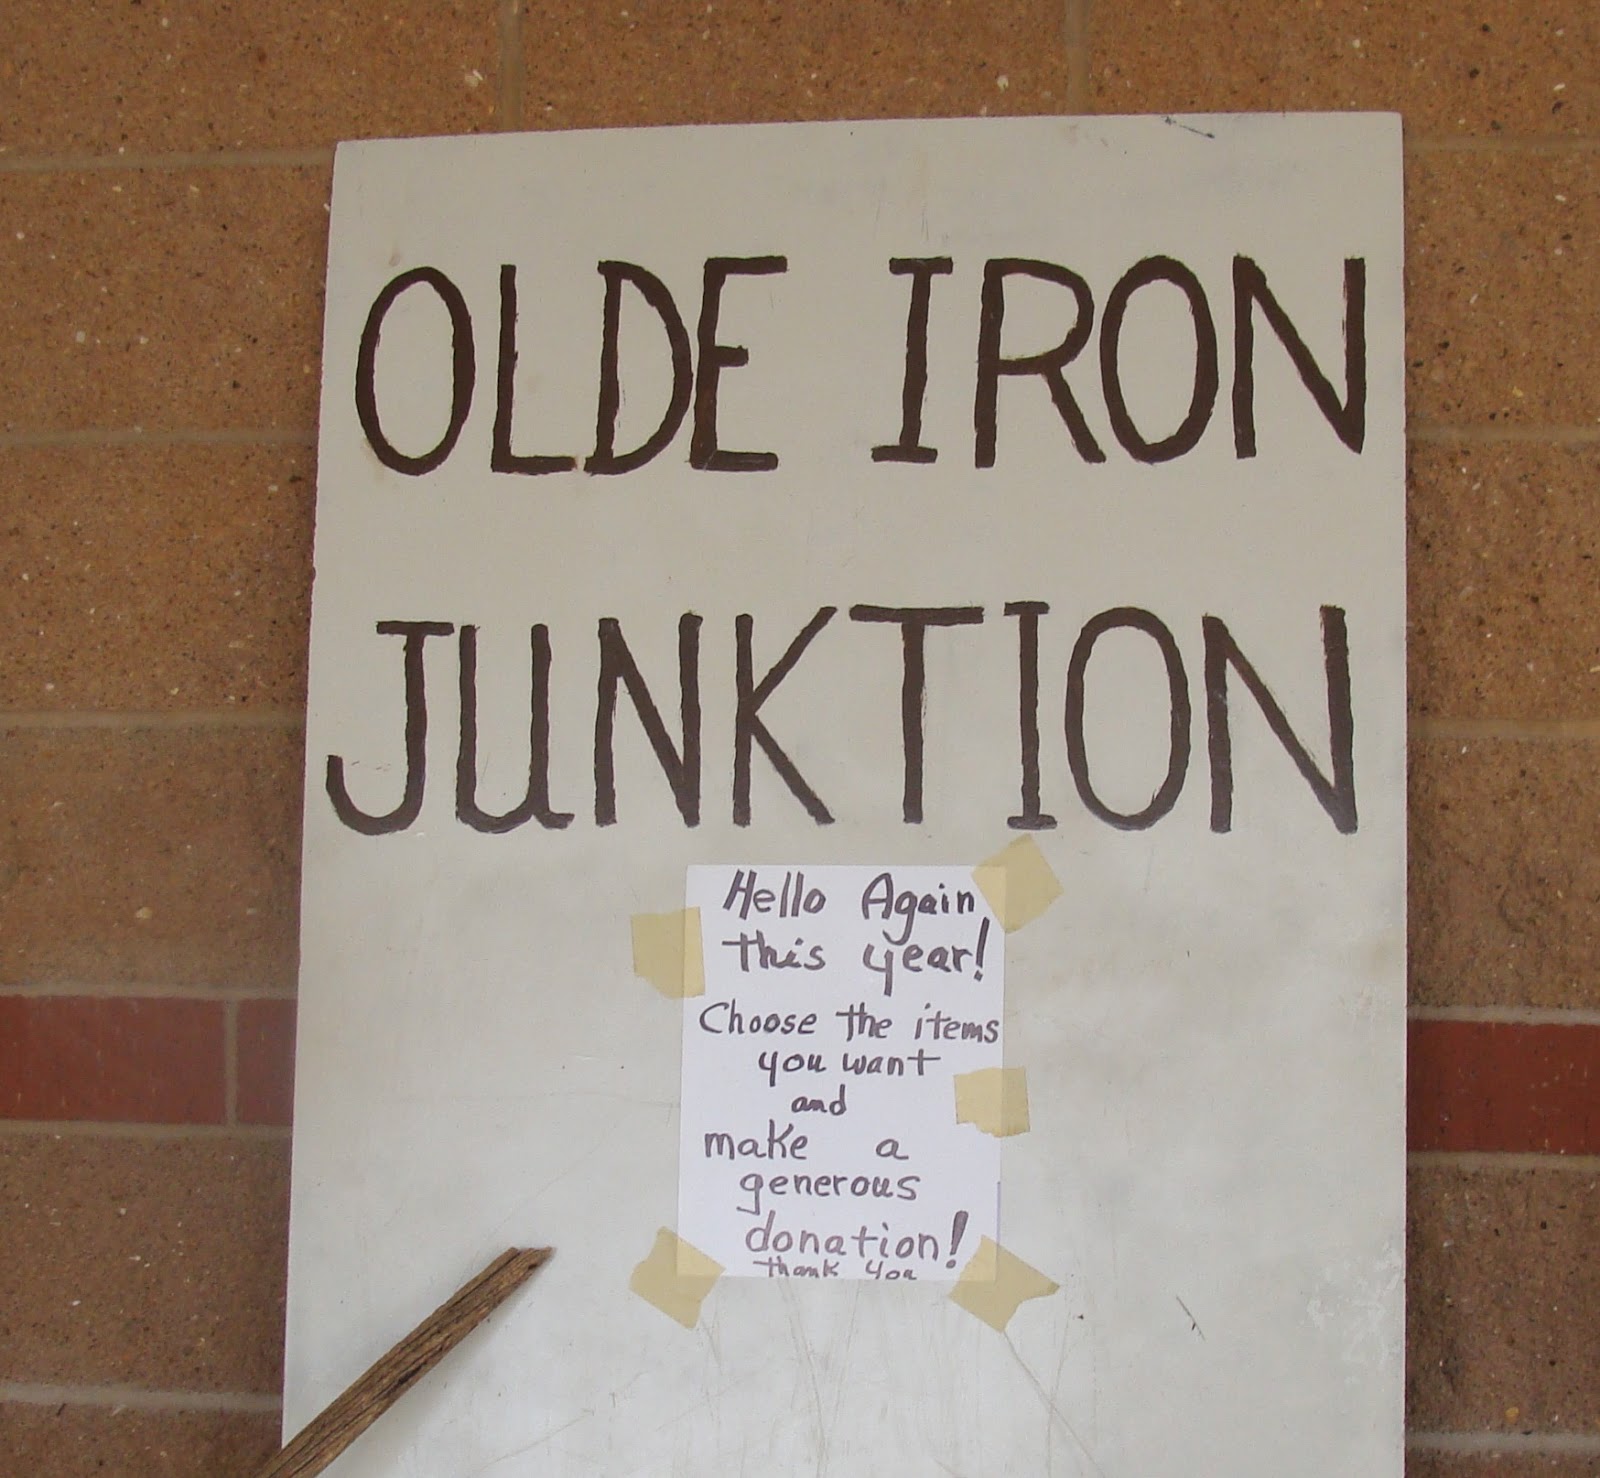 OLDE IRON
JUNKTION
Hello Again
this year!
Choose the items
you want
and
make a
generous
donation!
Thank You